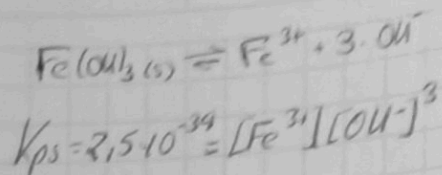 Fe(OH)₃ (s) ⇌ Fe³⁺ + 3·OH⁻
Kps = 2,5·10⁻³⁹ = [Fe³⁺][OH⁻]³